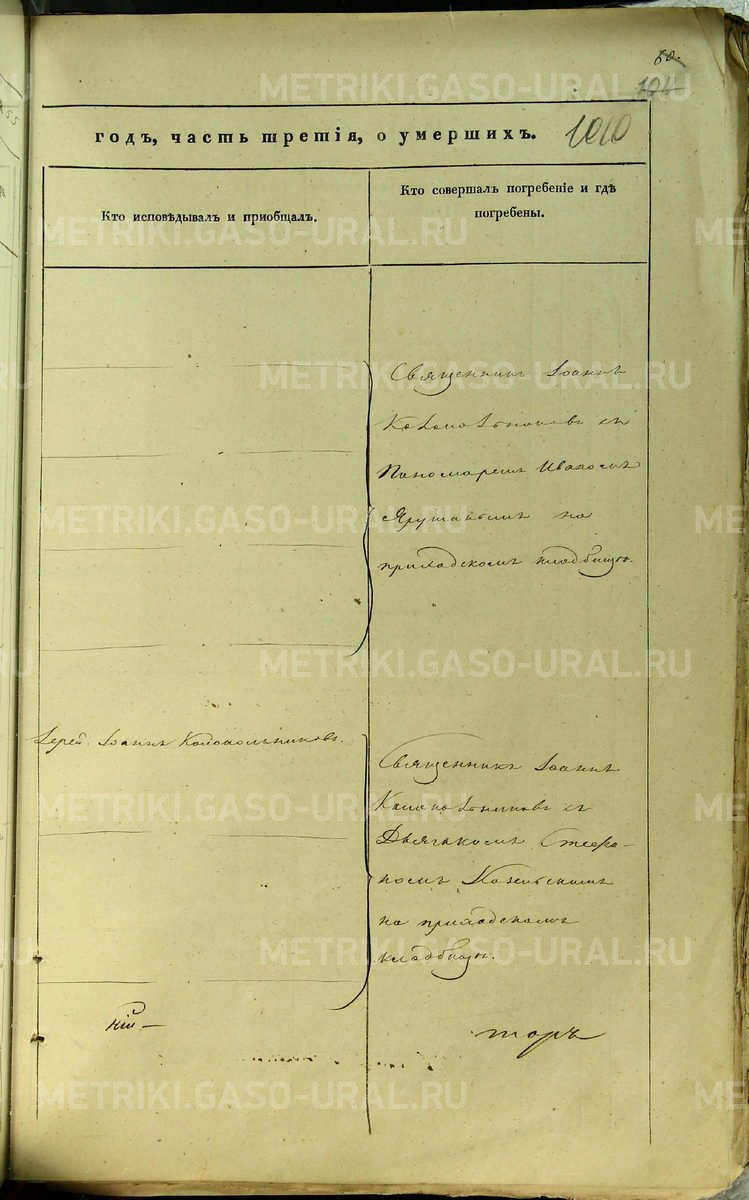 60.
104
годъ, часть третія, о умершихъ. 1010
Кто исповѣдывалъ и приобщалъ.
Кто совершалъ погребеніе и гдѣ
погребены.
Священникъ Іоаннъ
Колокольниковъ съ
Пономаремъ Иваномъ
на
приходскомъ кладбищѣ.
Іерей Іоаннъ Колокольниковъ.
Священникъ Іоаннъ
Колокольниковъ съ
Дьячкомъ Стефа-
номъ
на приходскомъ
кладбищѣ.
ній
торъ
METRIKI.GASO-URAL.RU